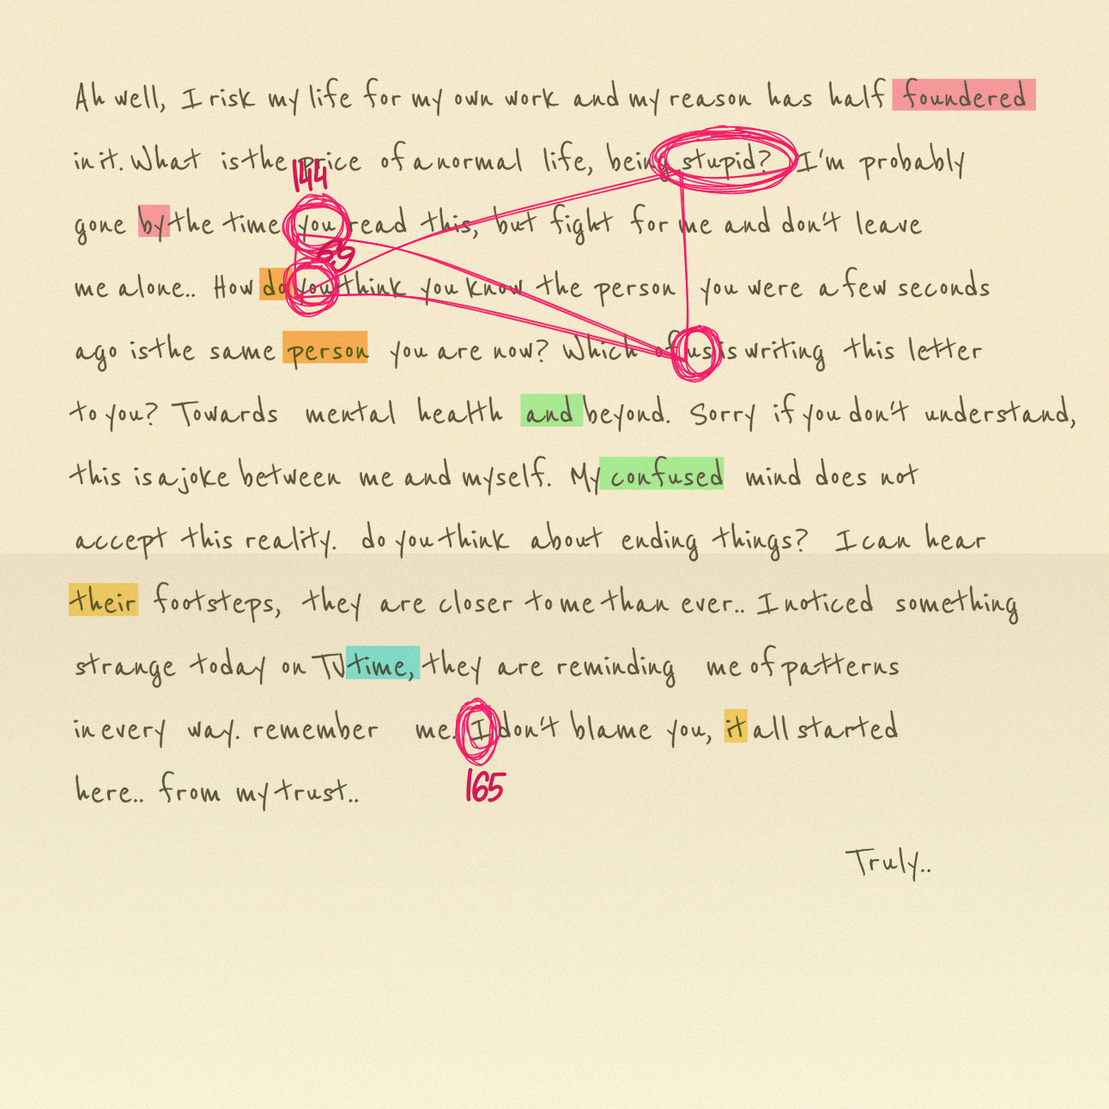 Ah well, I risk my life for my own work and my reason has half foundered
in it. What is the price of a normal life, being stupid? I'm probably
144
gone by the time you read this, but fight for me and don't leave
69
me alone.. How do you think you know the person you were a few seconds
ago is the same person you are now? Which of us is writing this letter
to you? Towards mental health and beyond. Sorry if you don't understand,
this is a joke between me and myself. My confused mind does not
accept this reality. do you think about ending things? I can hear
their footsteps, they are closer to me than ever.. I noticed something
strange today on TV time, they are reminding me of patterns
in every way. remember me. I don't blame you, it all started
165
here.. from my trust..
Truly..